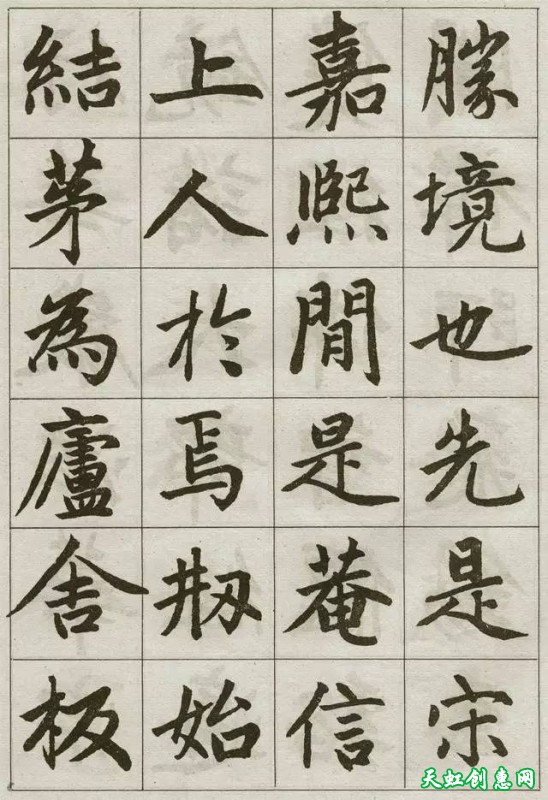 勝境也先是宋
嘉熙間是菴信
上人於焉刱始
結茅為廬舍板
天虹创惠网